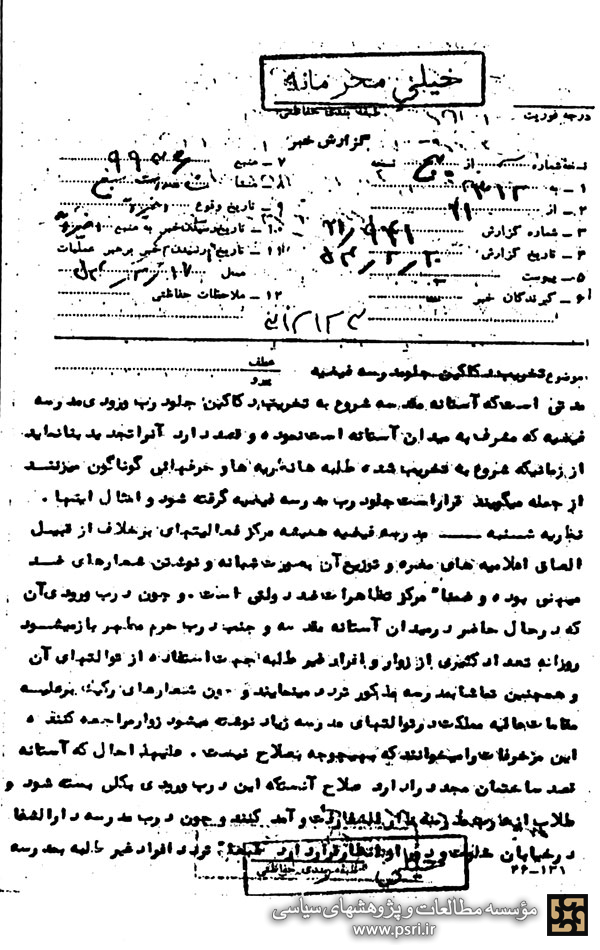 خیلی محرمانه
درجه فوریت
طبقه بندی حفاظتی
گزارش خبر
نسخه شماره از نسخه
۱ ـ به ۳۱۲
۲ ـ از ۲۱
۳ ـ شماره گزارش ۲۱/۹۴۱
۴ ـ تاریخ گزارش
۵ ـ پیوست
۶ ـ گیرندگان خبر
۷ ـ منبع ۹۹۲۶
۸ ـ منشا
۹ ـ تاریخ وقوع
۱۰ ـ تاریخ رسیدن خبر به منبع
۱۱ ـ تاریخ رسیدن خبر برهبر عملیات
محل
۱۲ ـ ملاحظات حفاظتی
موضوع تخریب دکاکین جلو مدرسه فیضیه
عطف
پیرو
مدتی است که آستانه مقدسه شروع به تخریب دکاکین جلو درب ورودی مدرسه
فیضیه که مشرف به میدان آستانه است نموده و قصد دارد آنرا تجدید بنا نماید
از زمانیکه شروع به تخریب شده طلبه ها و حرفهائی گوناگون میزنند
از جمله میگویند قرار است جلو درب مدرسه فیضیه گرفته شود و امثال اینها .
نظریه شنبه ـــ مدرسه فیضیه همیشه مرکز فعالیتهای برخلاف از قبیل
الصاق اعلامیه های مضره و توزیع آن بصورت شبانه و نوشتن شعارهای ضد
میهنی بوده و ضمنا" مرکز تظاهرات ضد دولتی است . و چون درب ورودی آن
که در حال حاضر در میدان آستانه مقدسه و جنب درب حرم مطهر باز میشود
روزانه تعداد کثیری از زوار و افراد غیر طلبه جهت استفاده از توالتهای آن
و همچنین تماشا بمدرسه مذکور تردد مینمایند و چون شعارهای رکیک برعلیه
مقامات عالیه مملکت در توالتهای مدرسه زیاد نوشته میشود زوار مراجعه کننده
این مزخرفات را میخوانند که بهیچوجه بصلاح نیست . علیهذا حال که آستانه
قصد ساختمان مجدد را دارد صلاح آنستکه این درب ورودی بکلی بسته شود و
طلاب از درب مدرسه دارالشفا رفت و آمد کنند و چون درب مدرسه دارالشفا
در خیابان خلوت و دور از انظار قرار دارد طبعا" تردد افراد غیر طلبه بمدرسه
خیلی
طبقه بندی حفاظتی
۲۶-۱۳۱
مؤسسه مطالعات و پژوهشهای سیاسی
www.psri.ir